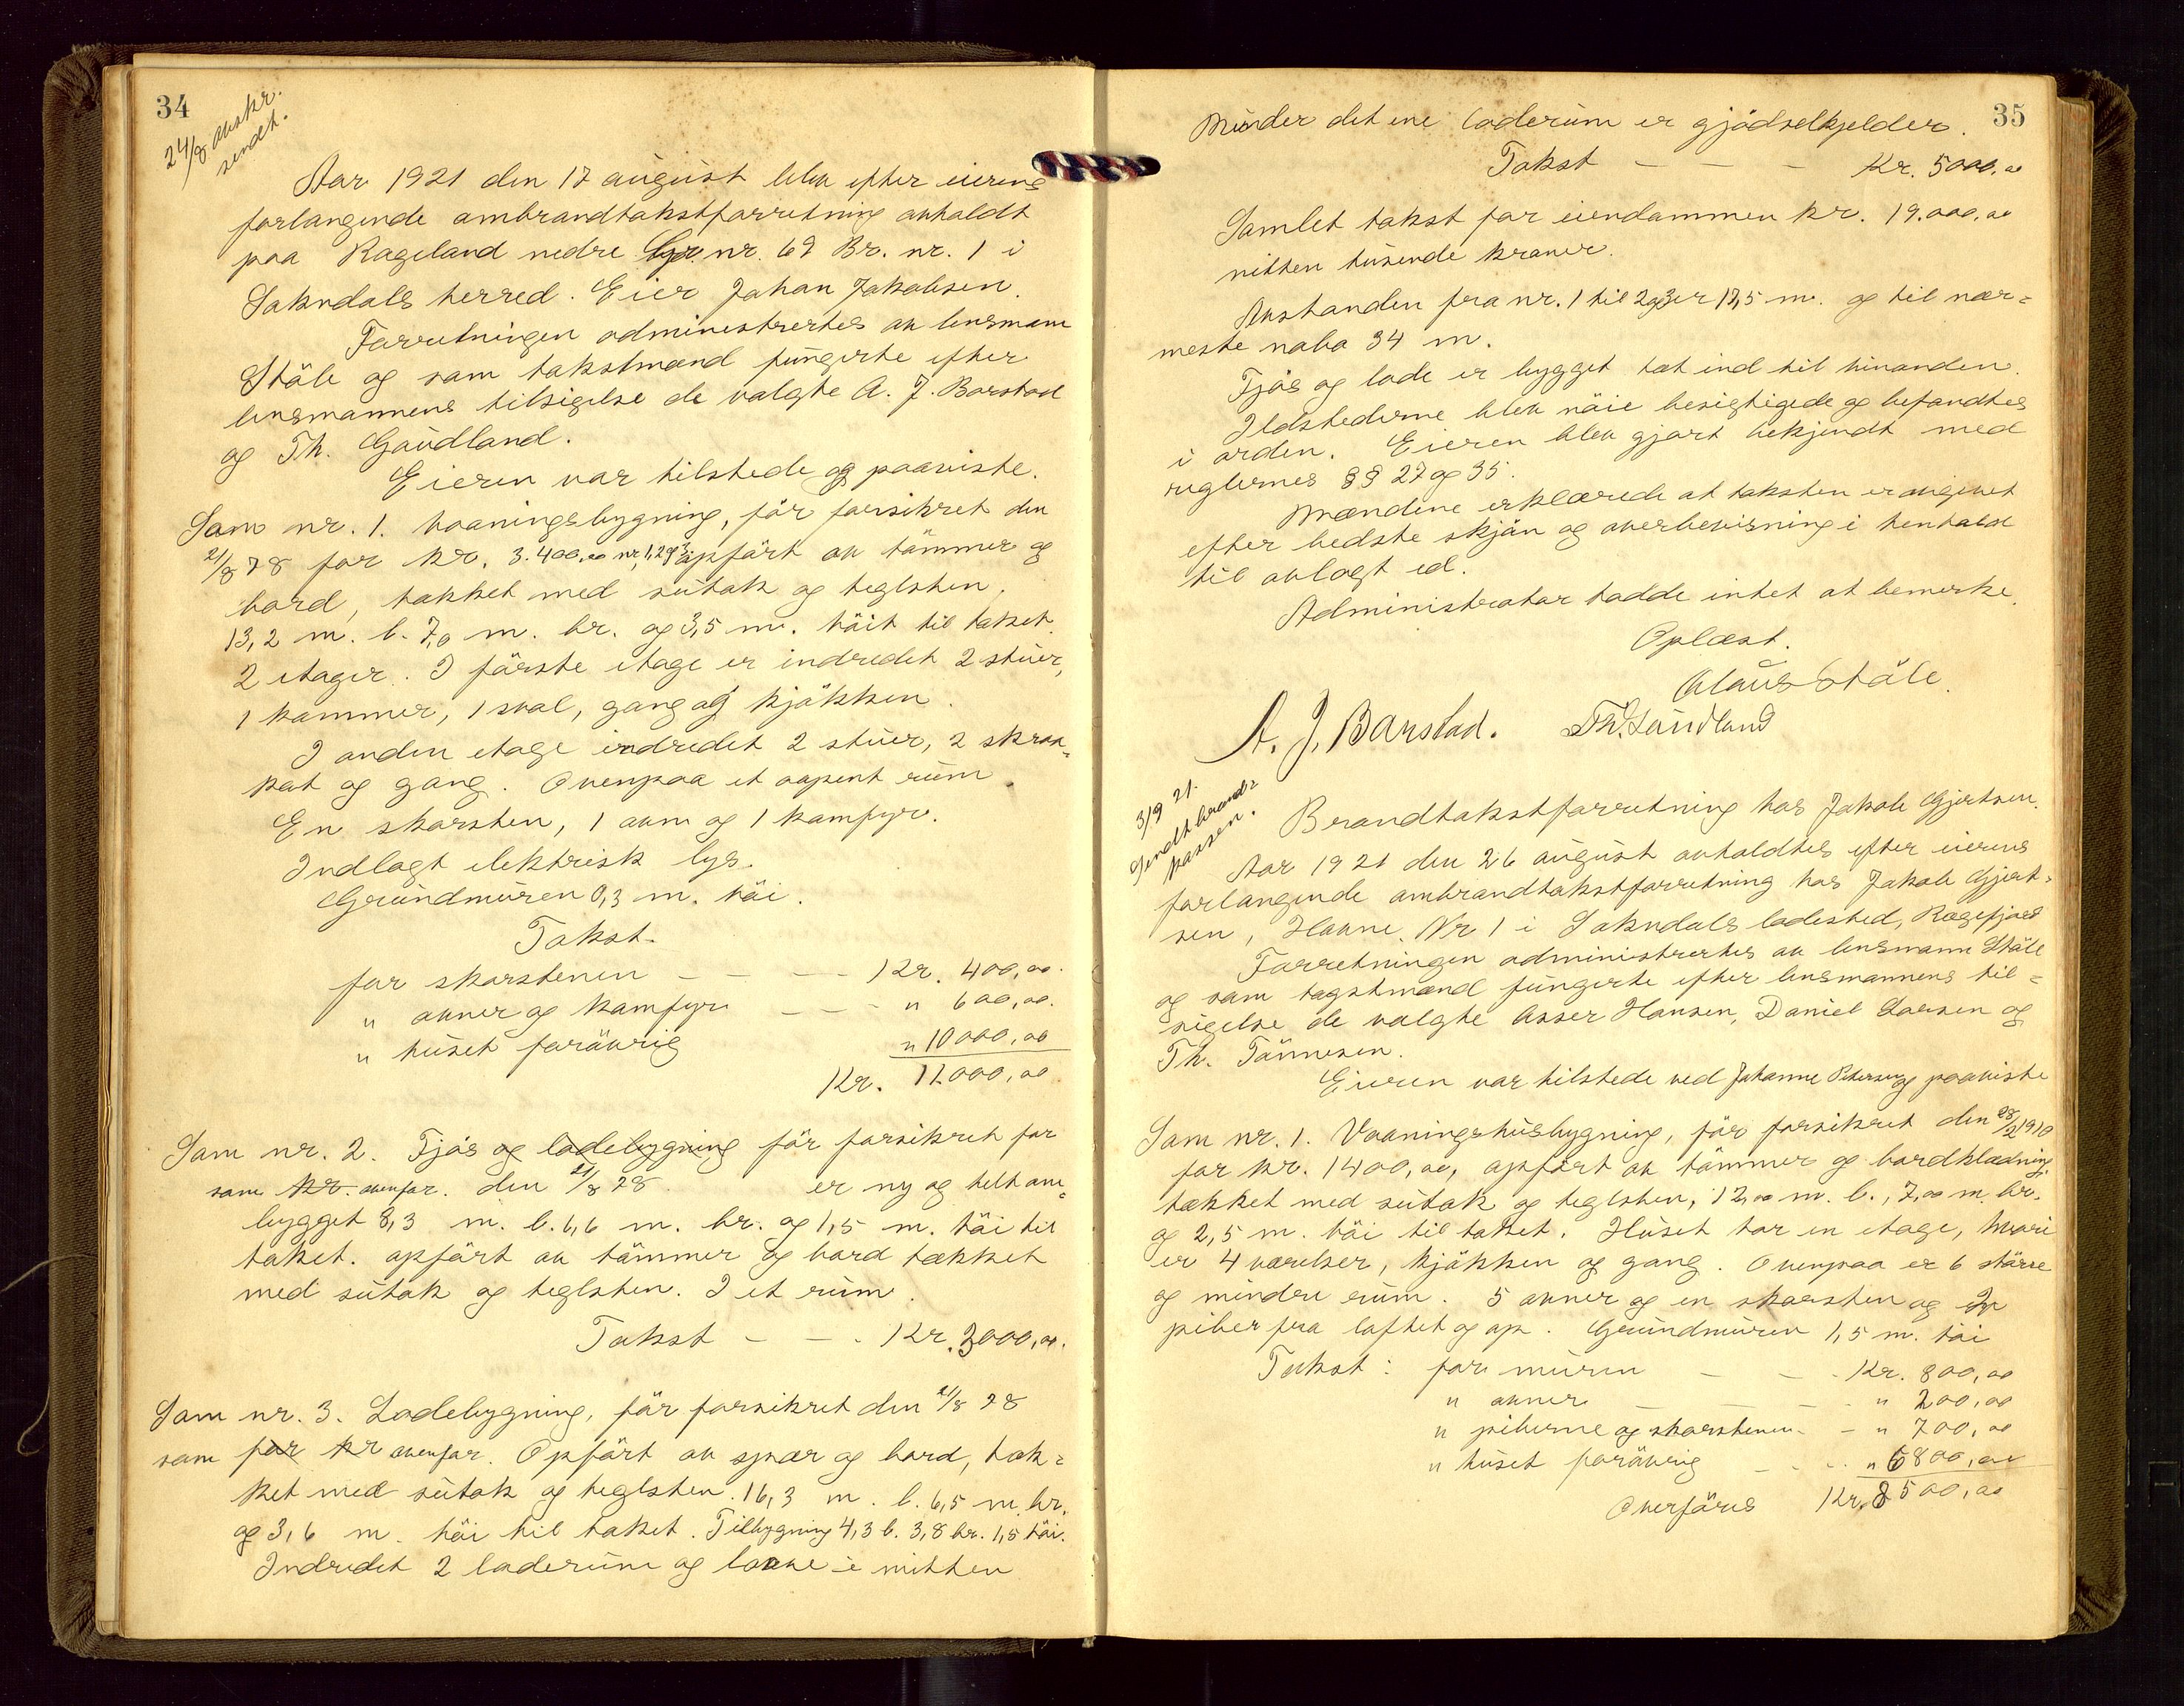 34
24/8 avskr.
sendt.
Aar 1921 den 17 august blev efter eierens
forlangende ombrandtakstforretning avholdt
paa Rageland nedre Gr. nr. 69 Br. nr. 1 i
Sokndals herred. Eier Johan Jakobsen.
Forretningen administrertes av lensmann
Ståle og som takstmænd fungerte efter
lensmannens tilsigelse de valgte A. J. Barstad
og Th. Gaudland.
Eieren var tilstede og paaviste.
Som nr. 1. Vaaningsbygning, før forsikret den
21/8 78 for kr. 3.400,00 nr. 1, 2 og 3 opført av tømmer og
bord, takket med sutak og teglsten,
13,2 m. l. 7,0 m. br. og 3,5 m. høit til taket.
2 etager. I første etage er indredet 2 stuer,
1 kammer, 1 sval, gang og kjøkken.
I anden etage indredet 2 stuer, 2 skraa-
kot og gang. Ovenpaa et aapent rum.
En skorsten, 1 ovn og 1 komfyr.
Indlagt elektrisk lys.
Grundmuren 0,3 m. høi.
Takst.
for skorstenen — — — Kr. 400,00.
" ovner og komfyr — — " 600,00.
" huset forøvrig " 10000,00
Kr. 11000,00
Som nr. 2. Fjøs og ladebygning før forsikret for
som kr. ovenfor. den 21/8 78. er ny og helt om-
bygget 8,3 m. l. 6,6 m. br. og 1,5 m. høi til
taket. opført av tømmer og bord tækket
med sutak og teglsten. I et rum.
Takst — — . Kr. 3000,00.
Som nr. 3. Ladebygning, før forsikret den 21/8 78
som for kr ovenfor. Opført av spær og bord, tæk-
ket med sutak og teglsten. 16,3 m. l. 6,5 m. br.
og 3,6 m. høi til taket. Tilbygning 4,3 l. 3,8 br. 1,5 høi.
Indredet 2 laderum og loave i mitten
35
Under det ene laderum er gjødselkjelder.
Takst — — — Kr. 5000,00
Samlet takst for eiendommen kr. 19.000,00
nitten tusende kroner.
Avstanden fra nr. 1 til 2 og 3 er 17,5 m. og til nær-
meste nabo 34 m.
Fjøs og lade er bygget tæt ind til hinanden.
Ildstederne blev nøie besigtigede og befandtes
i orden. Eieren blev gjort bekjendt med
reglernes §§ 27 og 35.
Mændene erklærede at taksten er avgivet
efter bedste skjøn og overbevisning i henhold
til avlagt ed.
Administrator hadde intet at bemerke.
Oplæst.
Claus Ståle.
A. J. Barstad. Th. Gaudland
3/9 21.
Sendt brand-
kassen.
Brandtakstforretning hos Jakob Gjertsen.
Aar 1921 den 26 august avholdtes efter eierens
forlangende ombrandtakstforretning hos Jakob Gjert-
sen, Havne. Nr 1 i Sokndals ladested, Rægefjord
Forretningen administrertes av lensmann Ståle
og som tagstmænd fungerte efter lensmannens til-
sigelse de valgte Asser Hansen, Daniel Larsen og
Th. Tønnesen.
Eieren var tilstede ved Johanne Petersen og paaviste
Som nr. 1. Vaaningshusbygning, før forsikret den 28/2 1910
for kr. 1400,00, opført av tømmer og bordklædning,
tækket med sutak og teglsten, 12,00 m. l., 7,00 m. br.
og 2,5 m. høi til taket. Huset har en etage, hvori
er 4 værelser, kjøkken og gang. Ovenpaa er 6 større
og mindre rum. 5 ovner og en skorsten og
piber fra loftet og op. Grundmuren 1,5 m. høi
Takst: for muren — — . Kr. 800,00
" ovner — — — . " 200,00
" piberne og skorstenen. — " 700,00
" huset forøvrig — . . . " 6800,00
Overføres Kr. 8500,00